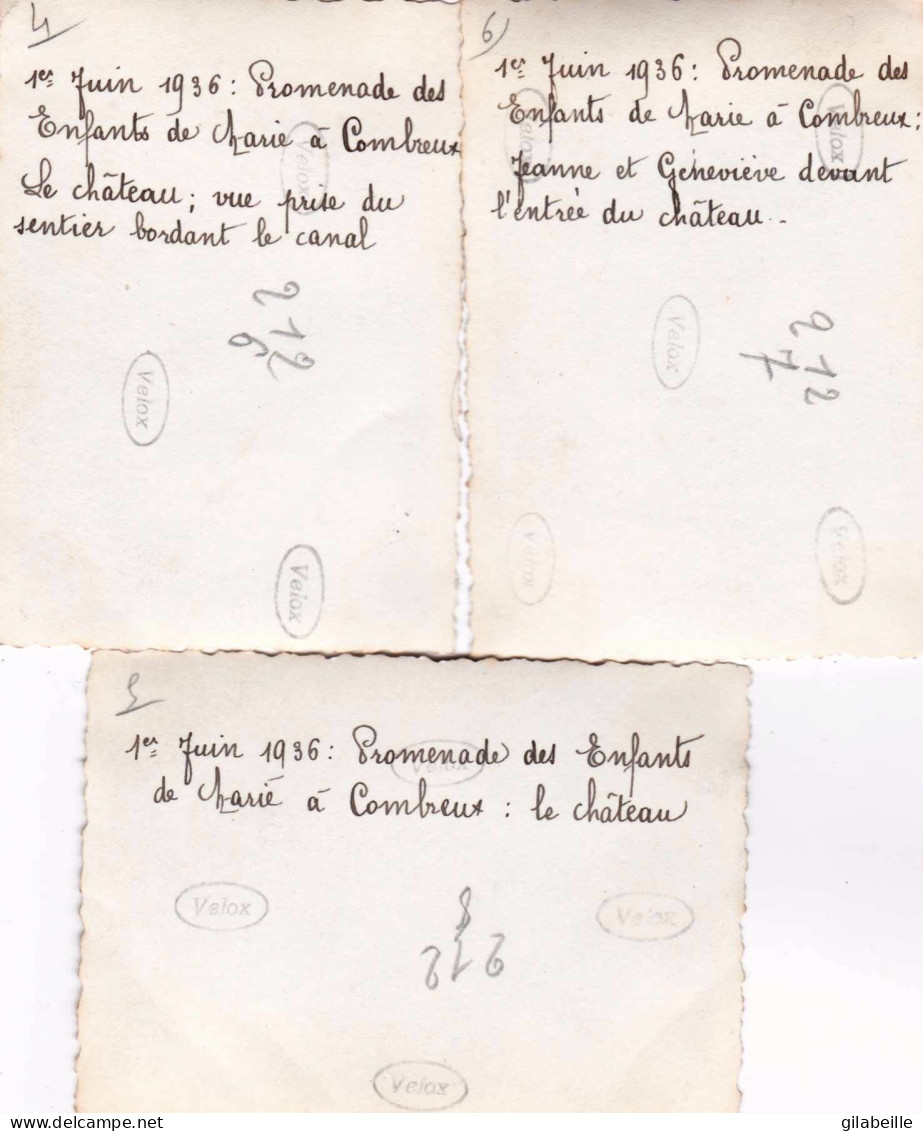 4
1er Juin 1936 : Promenade des
Enfants de Marie à Combreux
Le château ; vue prise du
sentier bordant le canal
Velox
212
6
Velox
Velox
6)
1er Juin 1936 : Promenade des
Enfants de Marie à Combreux :
Jeanne et Geneviève devant
l'entrée du château..
Velox
Velox
Velox
212
7
Velox
Velox
5
1er Juin 1936 : Promenade des Enfants
de Marie à Combreux : le château
Velox
Velox
Velox
8
212
Velox
gilabeille